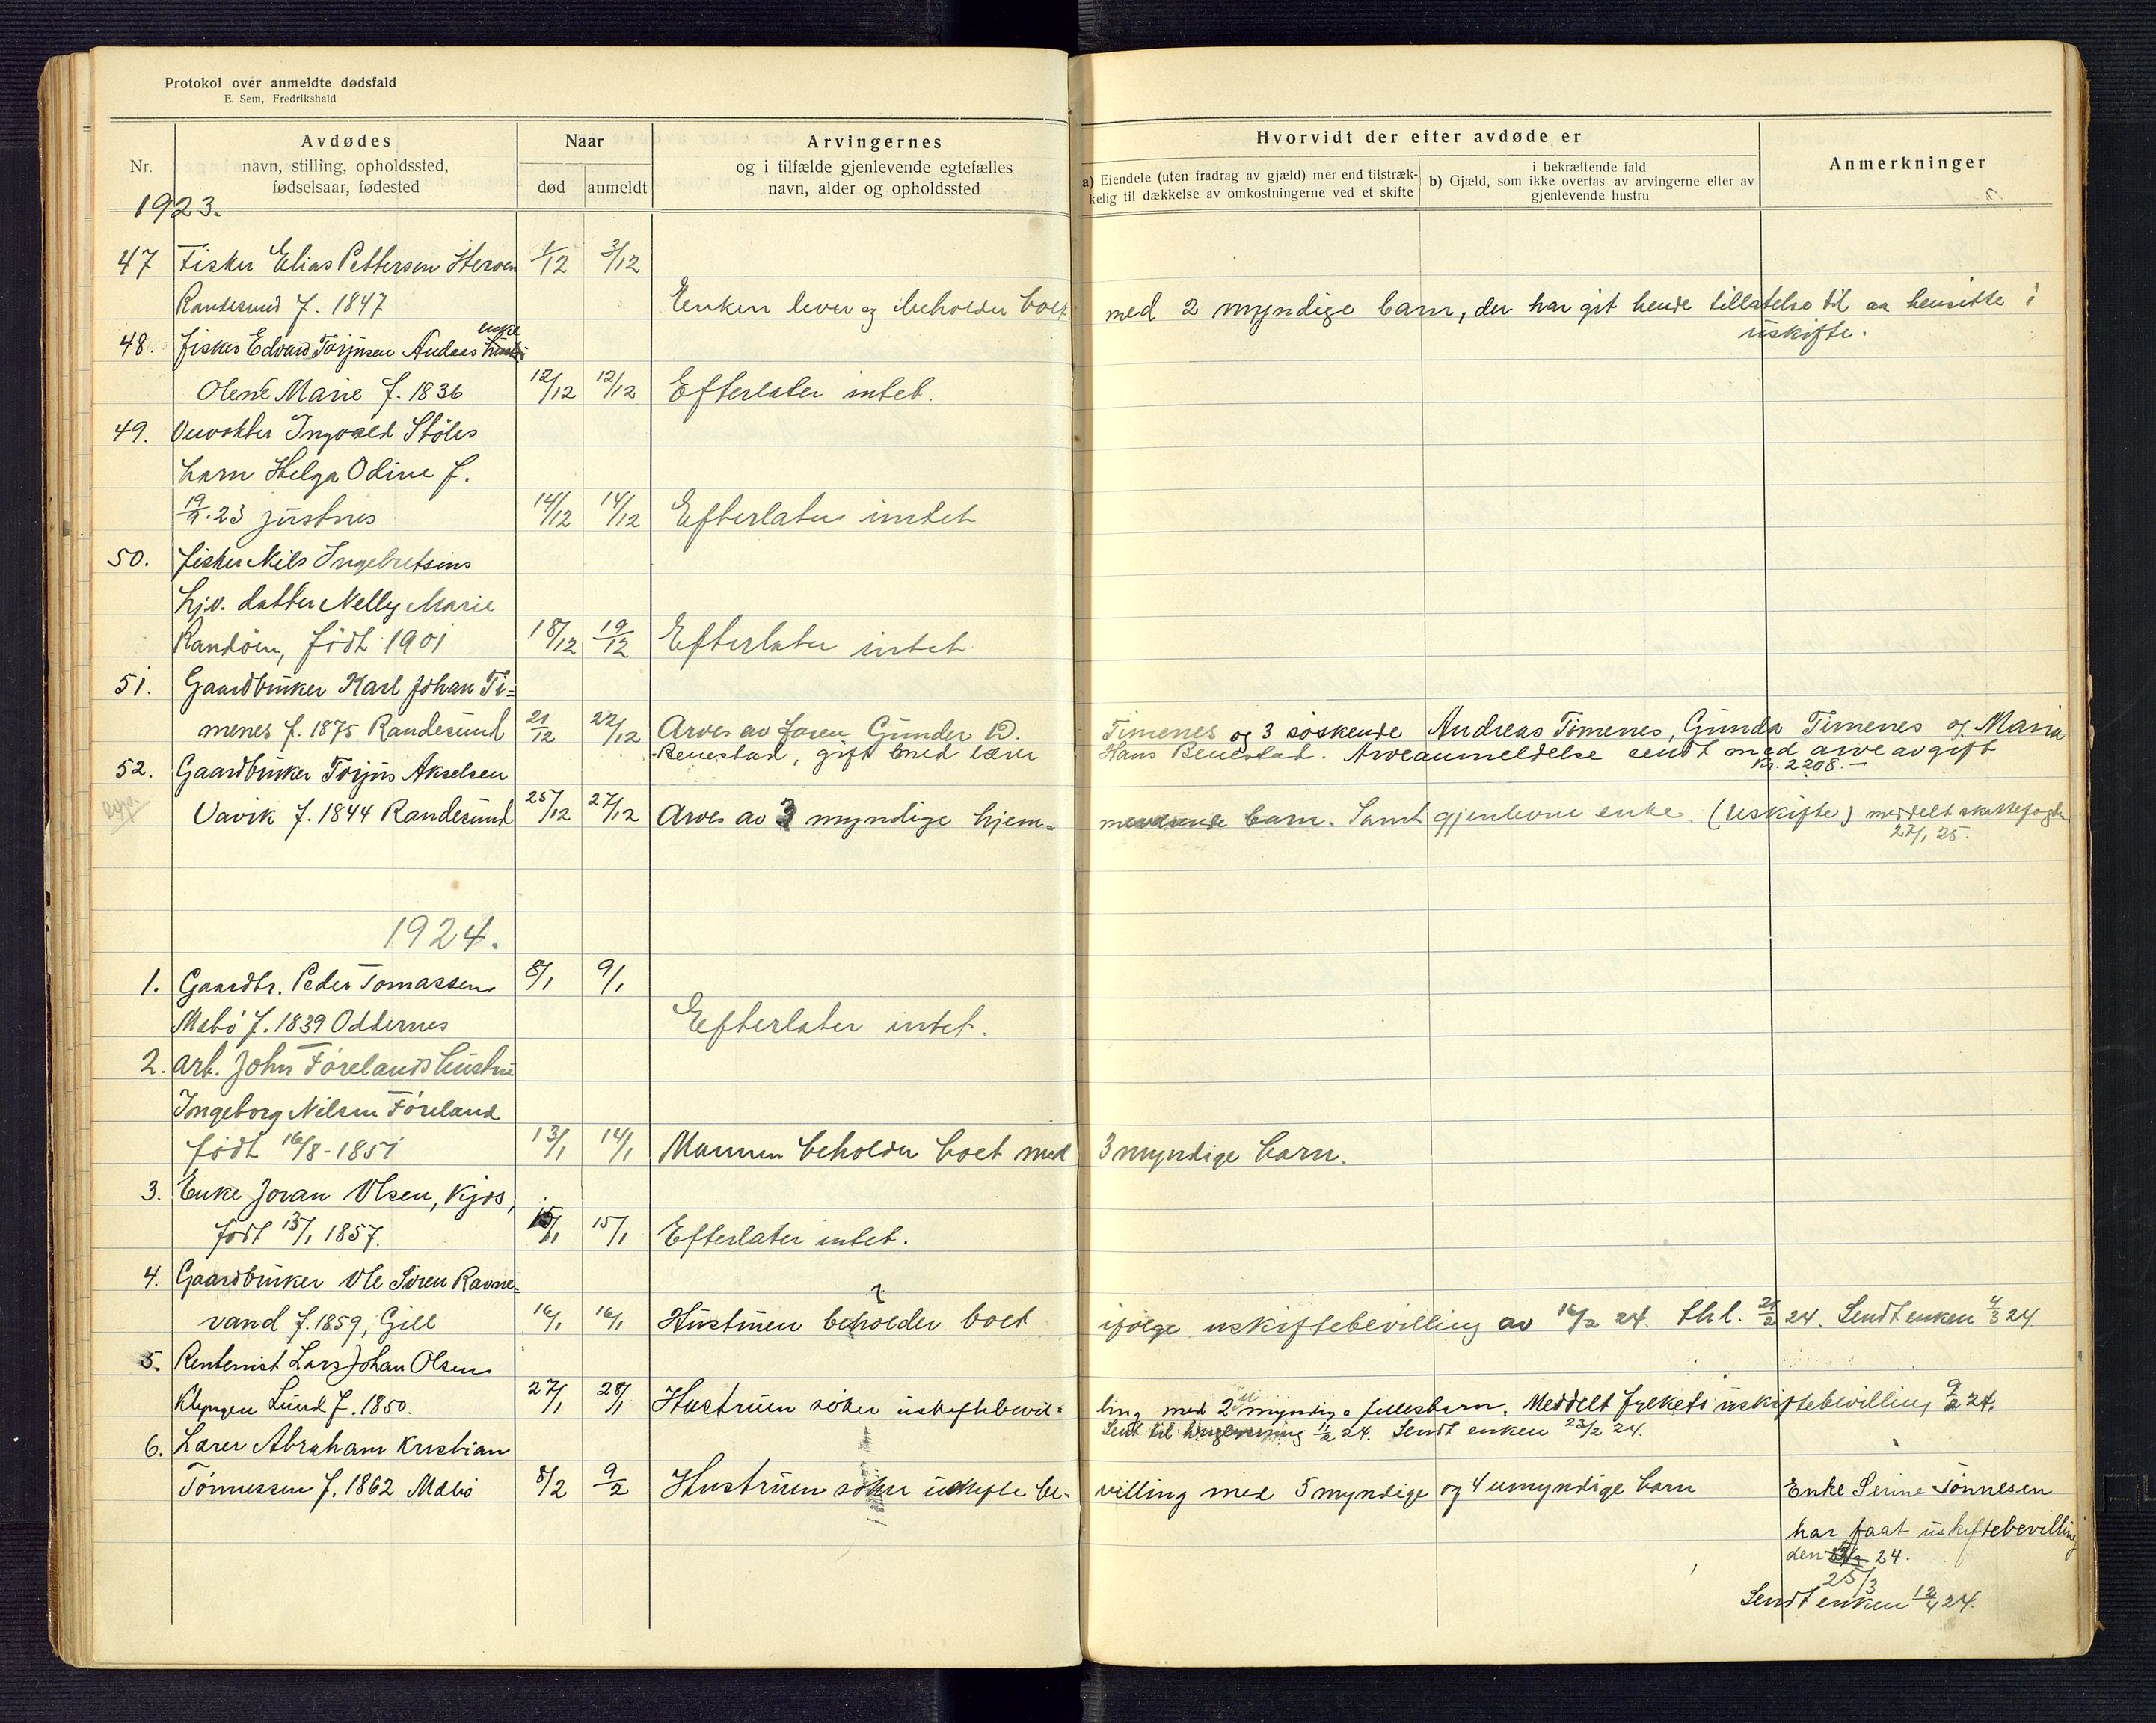 Protokol over anmeldte dødsfald
E. Sem, Fredrikshald
Nr.
Avdødes
navn, stilling, opholdssted,
fødselsaar, fødested
Naar
død
anmeldt
Arvingernes
og i tilfælde gjenlevende egtefælles
navn, alder og opholdssted
Hvorvidt der efter avdøde er
a) Eiendele (uten fradrag av gjæld) mer end tilstræk-
kelig til dækkelse av omkostningerne ved et skifte
i bekræftende fald
b) Gjæld, som ikke overtas av arvingerne eller av
gjenlevende hustru
Anmerkninger
1923.
47 Fisker Elias Pettersen 1/12 3/12
Randesund f. 1847 Enken lever og beholder boet med 2 myndige barn, der har git hende tillatelse til aa hensitte i
uskifte.
enke
48. Fisker Edvard Torjusen Andaas
Olene Marie f. 1836 12/12 12/12 Efterlater intet.
49. Ingvald Støles
barn Helga Odine f.
19/9.23 Justnes 14/12 14/12 Efterlater intet
50. Fisker Nils Ingebretsens
hjv. datter Nelly Marie
Randöen, födt 1901 18/12 19/12 Efterlater intet
51. Gaardbruker Karl Johan Ti=
menes f. 1875 Randesund 21/12 22/12 Arves av faren Gunder D. Timenes og 3 søskende Andreas Timenes, Gunda Timenes og Maria
Benestad, gift med lærer Hans Benestad. Arveanmeldelse sendt med arveavgift
kr. 2208.-
52. Gaardbruker Torjus Akselsen
Vavik f. 1844 Randesund 25/12 27/12 Arves av 3 myndige hjem= barn. Samt gjenlevne enke. (Uskifte) meddelt skattefogden
27/1 25.
1924.
1. Gaardbr. Peder Tomassen 8/1 9/1
Mebö f. 1839 Oddernes Efterlater intet.
2. Arb. John Förelands hustru
Ingeborg Nilsen Föreland
födt 16/8-1851 13/1 14/1 Mannen beholder boet med 3 myndige barn.
3. Enke Joran Olsen, Kjos,
født 13/1 1857. 15/1 15/1 Efterlater intet.
4. Gaardbruker Ole Sören Ravne-
vand f. 1859, Gill 16/1 16/1 Hustruen beholder boet ifølge uskiftebevilling av 16/2 24. thl. 21/2 24. Sendt enken 4/3 24.
5. Rentenist Lars Johan Olsen
Klepgen Lund f. 1850. 27/1 28/1 Hustruen söker uskiftebevil= ling med 2 umyndige fellesbarn. Meddelt fylkets uskiftebevilling 9/2 24.
Sendt til tinglysning 11/2 24. Sendt enken 23/2 24.
6. Lærer Abraham Kristian
Tönnessen f. 1862 Mebö 8/2 9/2 Hustruen söker uskifte be- villing med 5 myndige og 4 umyndige barn Enke Serine Tönnesen
har faat uskiftebevilling
den 24.
25/3
Sendt enken 12/4 24.